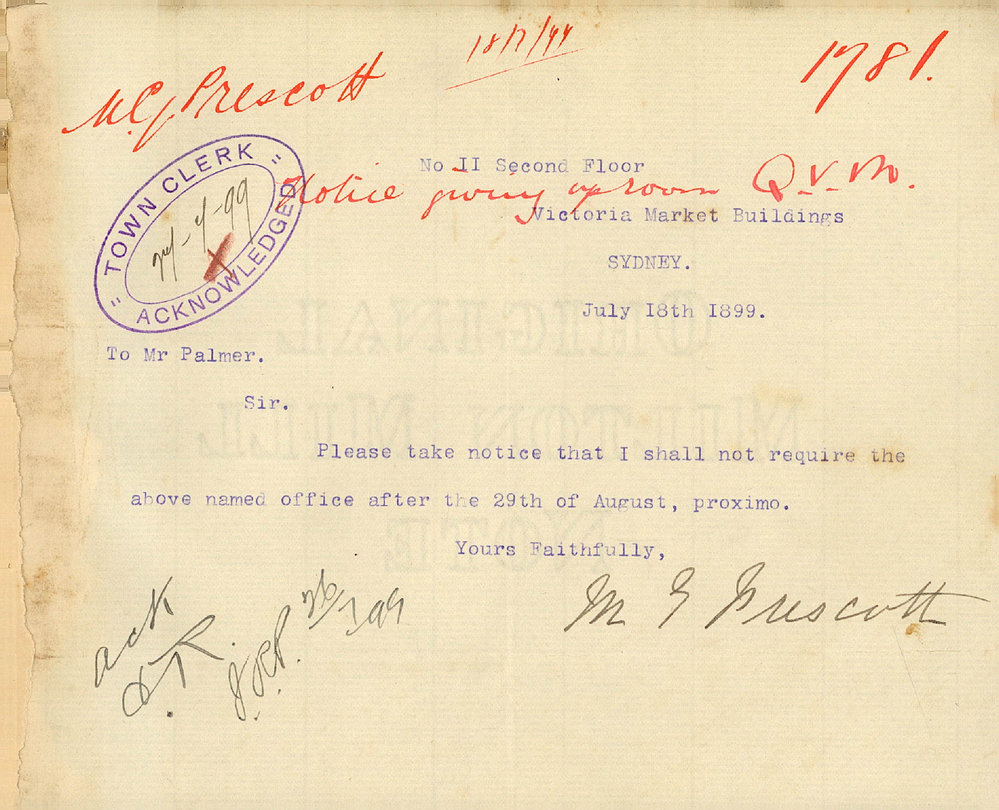 18/7/99
1781.
M.G. Prescott
TOWN CLERK
ACKNOWLEDGED
No II Second Floor
Notice giving up room Q.V.M.
Victoria Market Buildings
SYDNEY.
July I8th I899.
To Mr Palmer.
Sir.
Please take notice that I shall not require the
above named office after the 29th of August, proximo.
Yours Faithfully,
M G Prescott
ack
26/7/99
ORIGINAL
MILTON MILL
NOTE